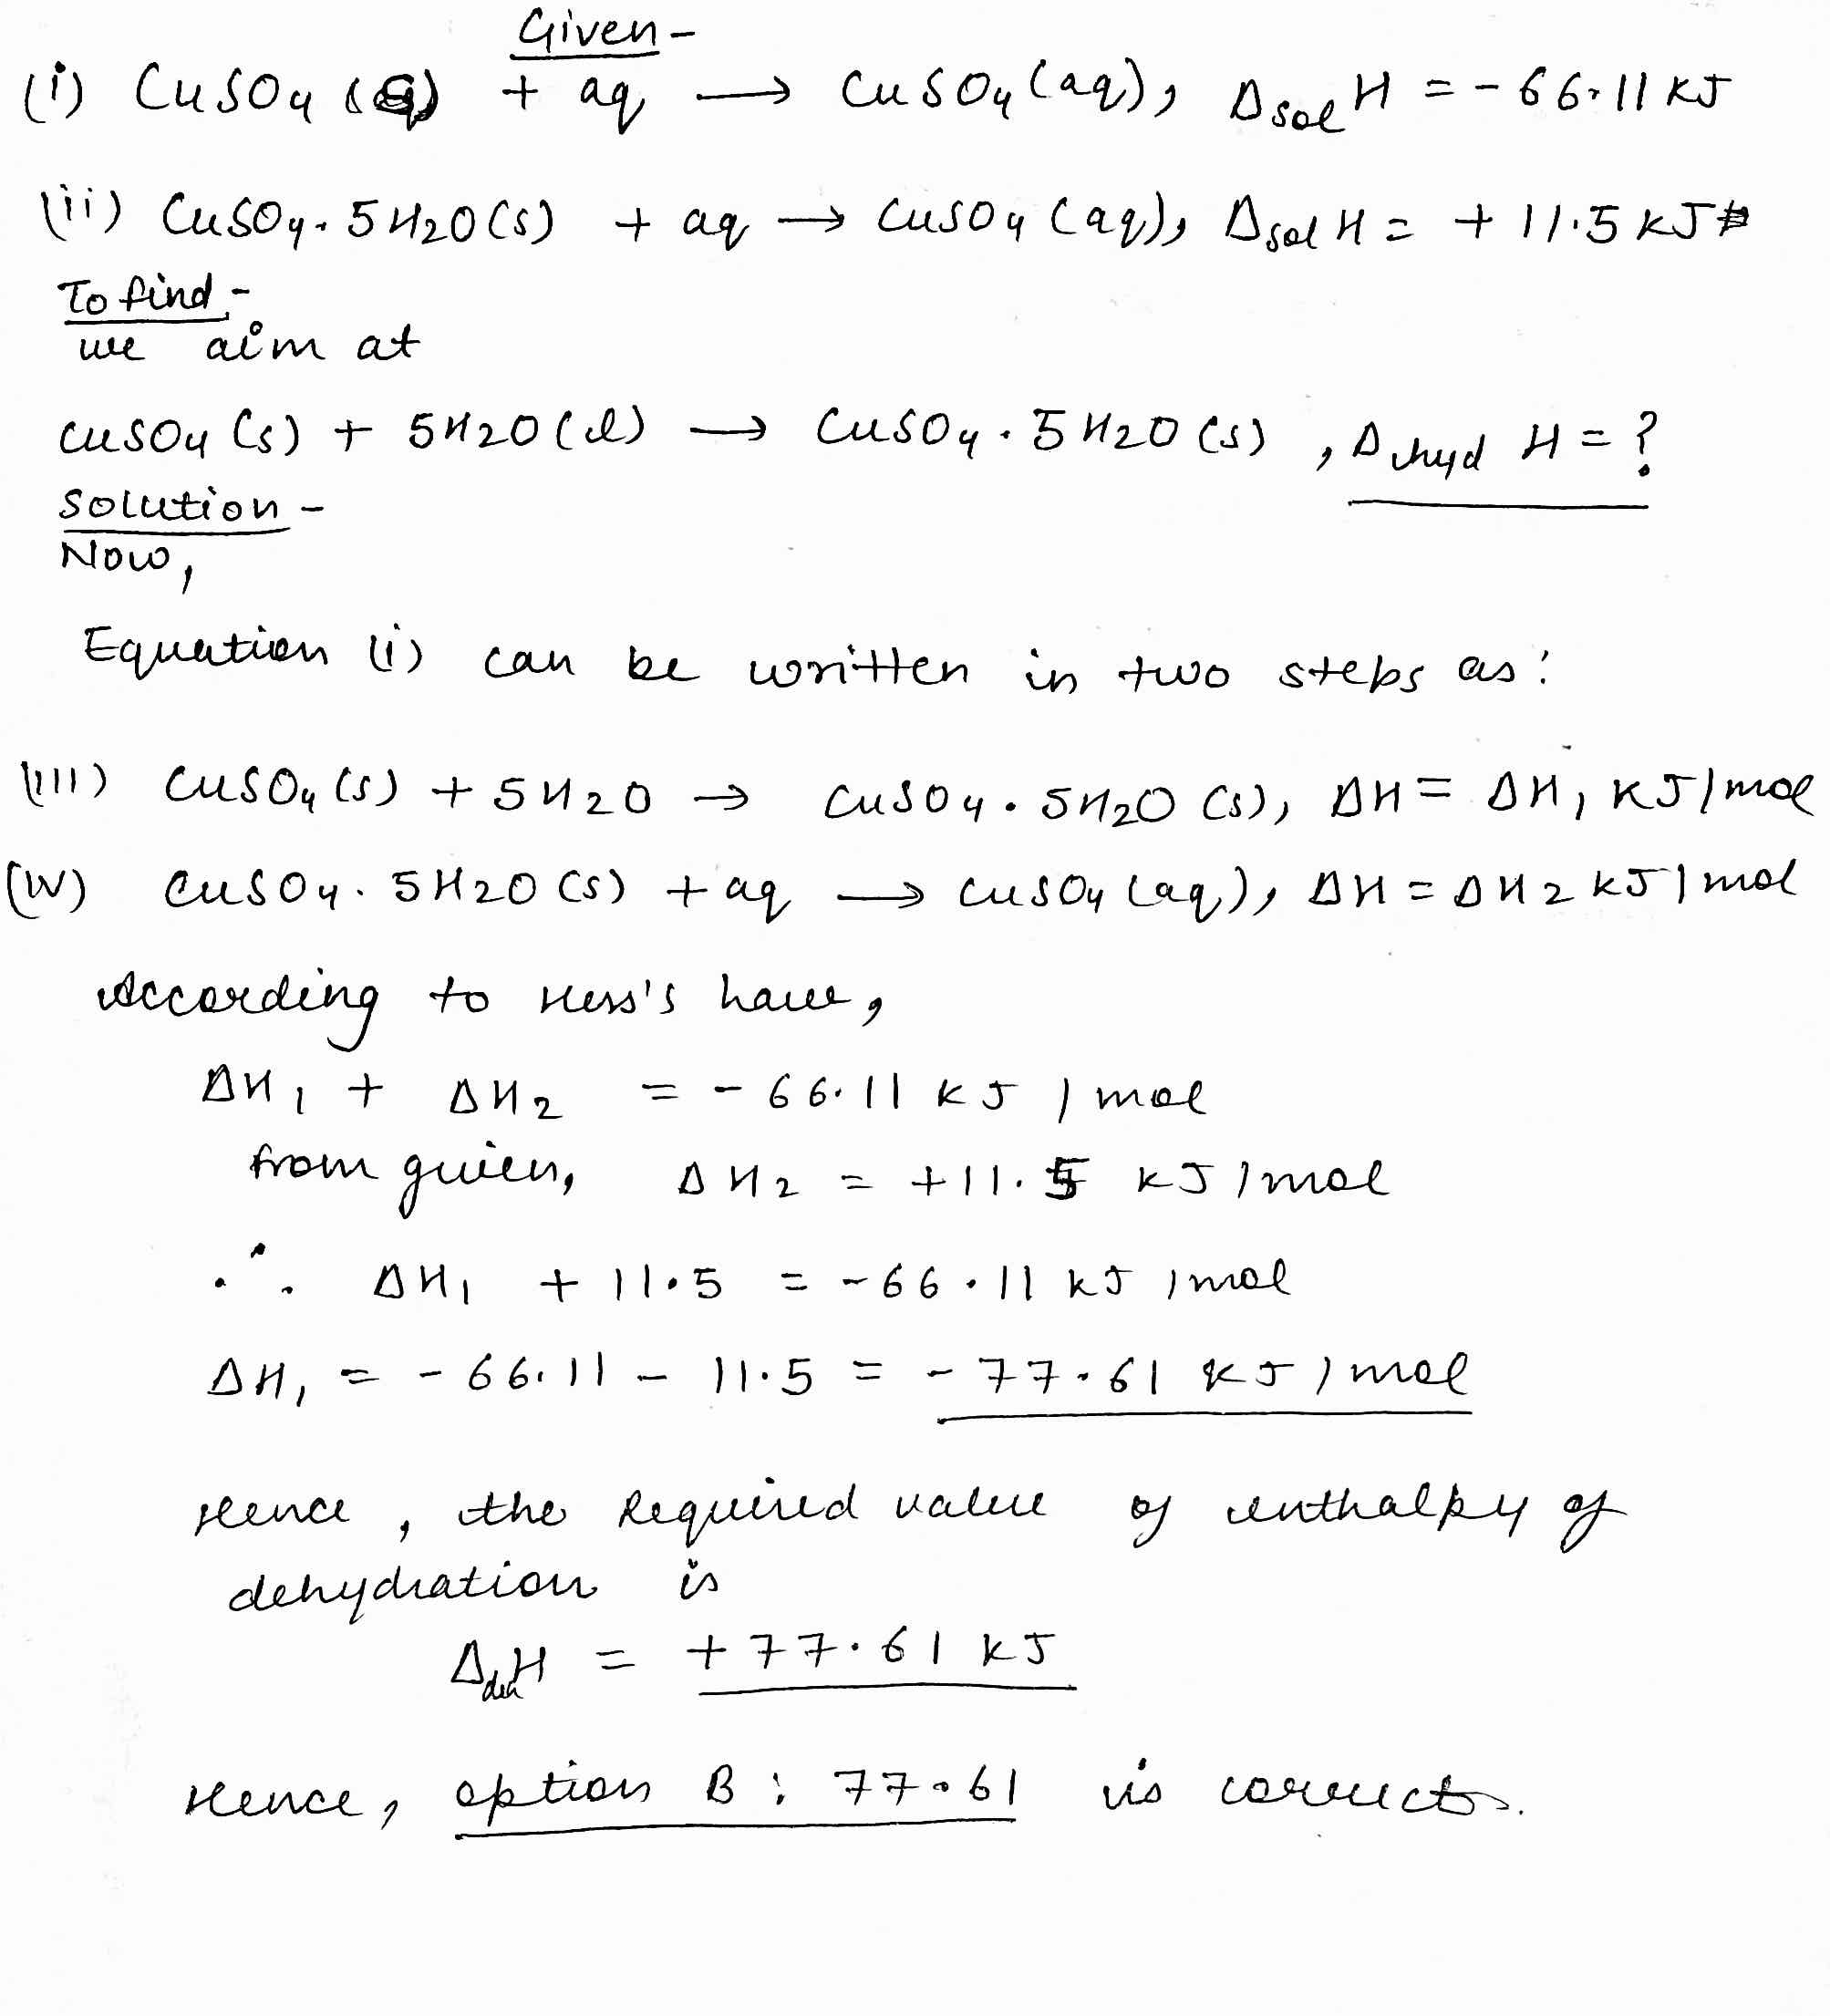 Given-
(i) CuSO4 (s) + aq → CuSO4 (aq), ΔsolH = - 66.11 KJ
(ii) CuSO4. 5H2O(s) + aq → CuSO4 (aq), ΔsolH = + 11.5 KJ
To find -
we aim at
CuSO4 (s) + 5H2O (l) → CuSO4 . 5H2O (s) , Δhyd H = ?
Solution -
Now,
Equation (i) can be written in two steps as:
(III) CuSO4 (s) + 5H2O → CuSO4 . 5H2O (s), ΔH = ΔH1 KJ/mol
(IV) CuSO4 . 5H2O (s) + aq → CuSO4 (aq), ΔH = ΔH2 KJ/mol
According to Hess's have,
ΔH1 + ΔH2 = - 66.11 KJ / mol
from given, ΔH2 = +11.5 KJ /mol
∴ ΔH1 + 11.5 = -66.11 KJ /mol
ΔH1 = - 66.11 - 11.5 = - 77.61 KJ / mol
Hence , the Required value of enthalpy of
dehydration is
ΔdehH = + 77.61 KJ
Hence, option B : 77.61 is correct.